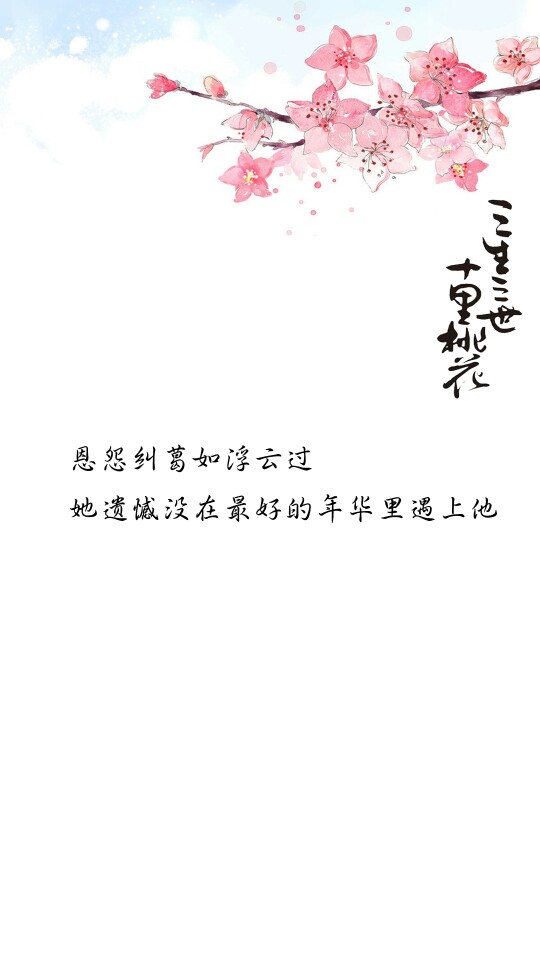 三生三世
十里桃花
恩怨纠葛如浮云过
她遗憾没在最好的年华里遇上他